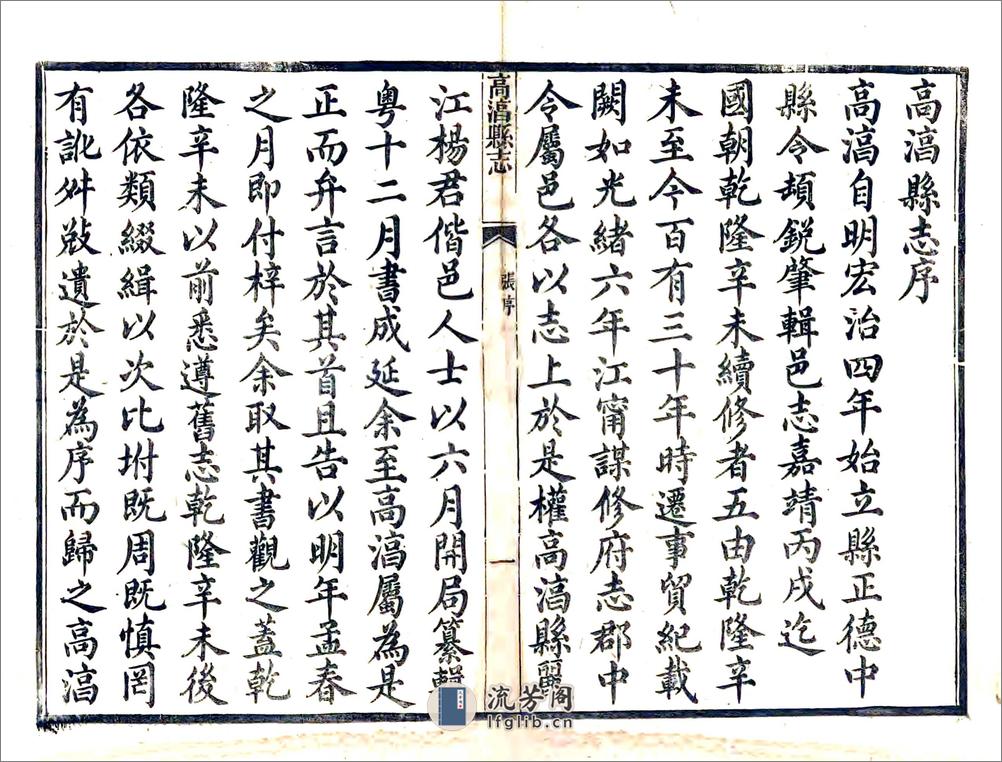 高淳縣志序
高淳自明宏治四年始立縣正德中
縣令頓鋭肇輯邑志嘉靖丙戌迄
國朝乾隆辛未續修者五由乾隆辛
未至今百有三十年時遷事貿紀載
闕如光緒六年江甯謀修府志郡中
令屬邑各以志上於是權高淳縣麗
高淳縣志
張序
一
江楊君偕邑人士以六月開局纂輯
粵十二月書成延余至高淳屬為是
正而弁言於其首且告以明年孟春
之月即付梓矣余取其書觀之蓋乾
隆辛未以前悉遵舊志乾隆辛未後
各依類綴緝以次比坿既周既慎罔
有訛舛敚遺於是為序而歸之高淳
流芳阁
lfglib.cn